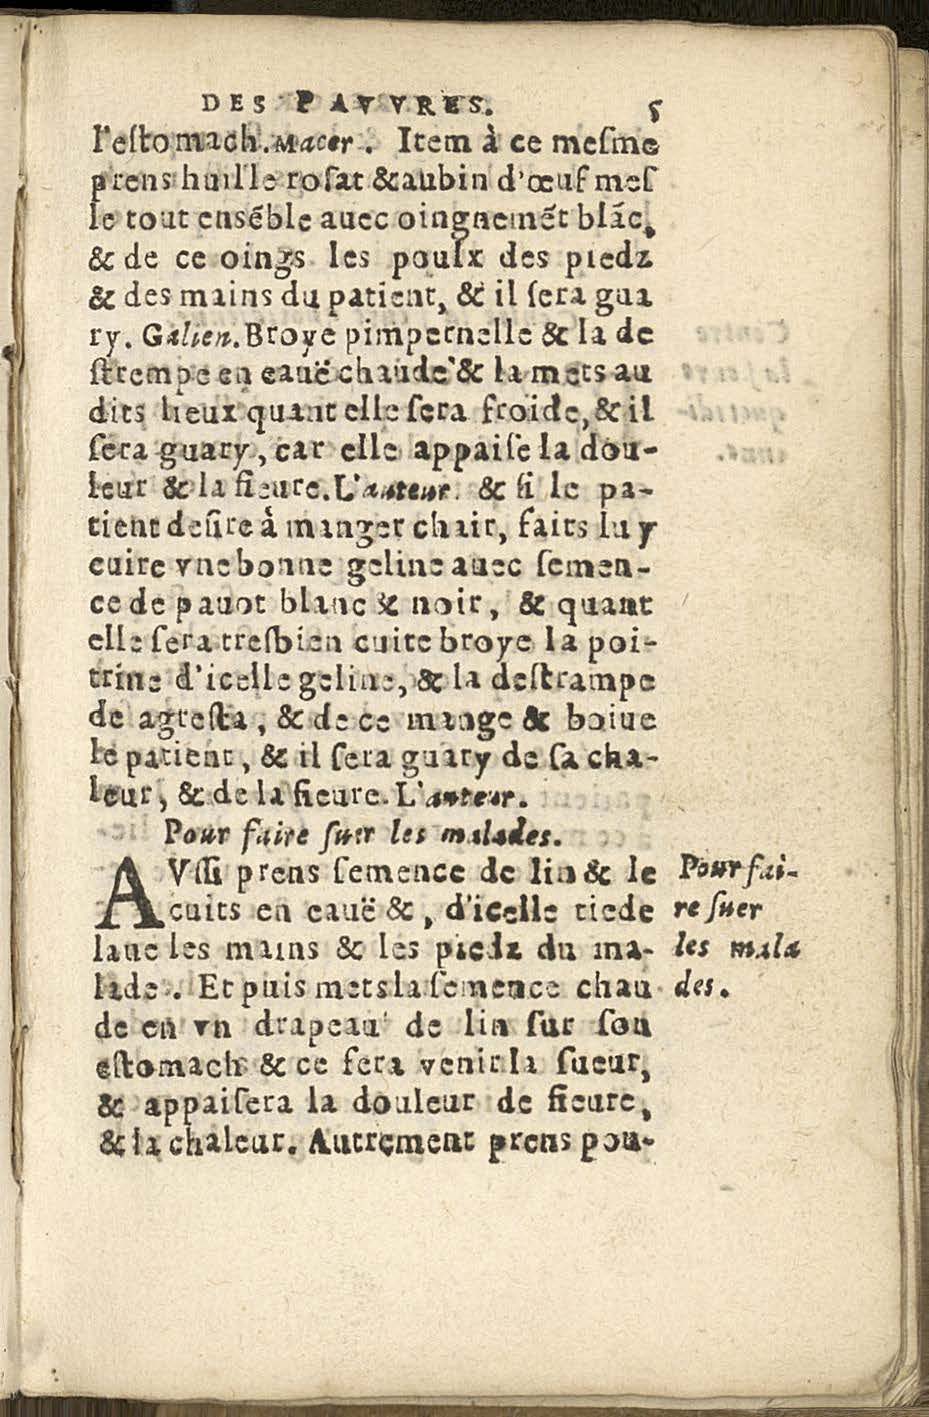 DES PAVVRES. 5
l'eſtomach. Macer. Item à ce meſme
prens huille roſat & aubin d'œuf meſ
le tout enséble auec oingnemēt blāc,
& de ce oings les poulx des piedz
& des mains du patient, & il ſera gua
ry. Galien. Broye pimpernelle & la de
ſtrempe en eauë chaude & la mets au
dits lieux quant elle ſera froide, & il
ſera guary, car elle appaiſe la dou-
leur & la fieure. L'auteur. & ſi le pa-
tient deſire à manger chair, faits luy
cuire vne bonne geline auec ſemen-
ce de pauot blanc & noir, & quant
elle ſera treſbien cuite broye la poi-
trine d'icelle geline, & la deſtrampe
de agreſta, & de ce mange & boiue
le patient, & il ſera guary de ſa cha-
leur, & de la fieure. L'auteur.
Pour faire ſuer les malades.
AVſſi prens ſemence de lin & le
cuits en eauë &, d'icelle tiede
laue les mains & les piedz du ma-
lade. Et puis mets la ſemence chau
de en vn drapeau de lin ſur ſon
eſtomach & ce fera venir la ſueur,
& appaiſera la douleur de fieure,
& la chaleur. Autrement prens pou-
Pour fai-
re ſuer
les mala
des.